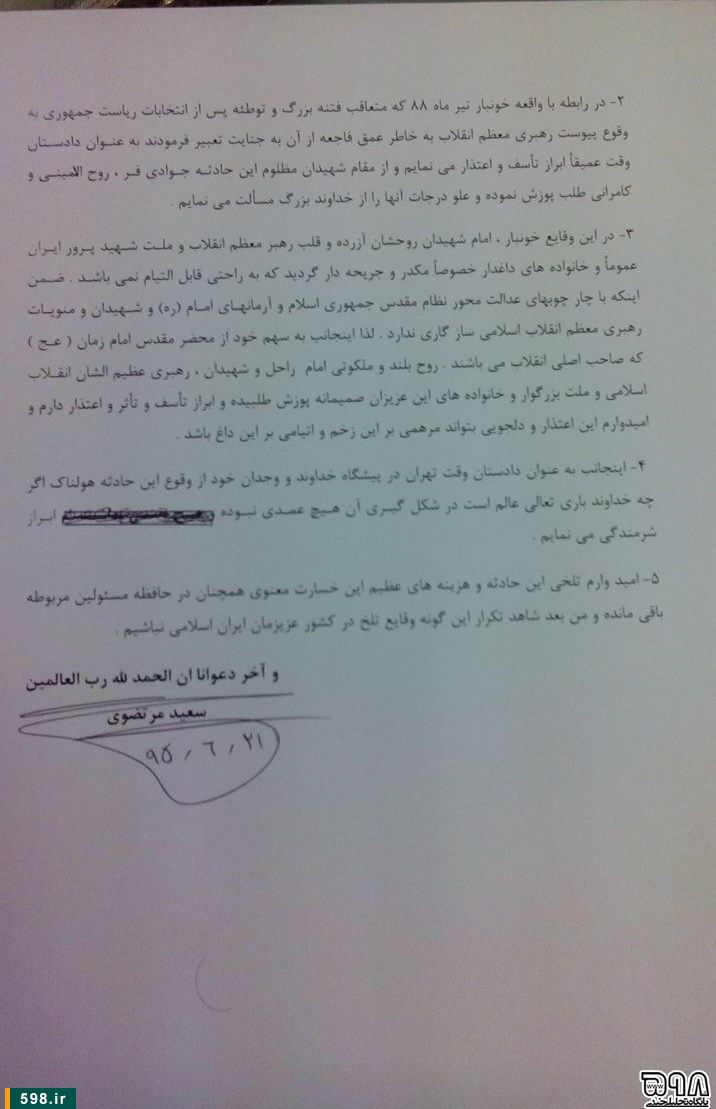 ۲- در رابطه با واقعه خونبار تیر ماه ۸۸ که متعاقب فتنه بزرگ و توطئه پس از انتخابات ریاست جمهوری به
وقوع پیوست رهبری معظم انقلاب به خاطر عمق فاجعه از آن به جنایت تعبیر فرمودند به عنوان دادستان
وقت عمیقاً ابراز تأسف و اعتذار می نمایم و از مقام شهیدان مظلوم این حادثه جوادی فر ، روح الامینی و
کامرانی طلب پوزش نموده و علو درجات آنها را از خداوند بزرگ مسألت می نمایم .
۳- در این وقایع خونبار ، امام شهیدان روحشان آزرده و قلب رهبر معظم انقلاب و ملت شهید پرور ایران
عموماً و خانواده های داغدار خصوصاً مکدر و جریحه دار گردید که به راحتی قابل التیام نمی باشد . ضمن
اینکه با چار چوبهای عدالت محور نظام مقدس جمهوری اسلام و آرمانهای امام (ره) و شهیدان و منویات
رهبری معظم انقلاب اسلامی ساز گاری ندارد . لذا اینجانب به سهم خود از محضر مقدس امام زمان ( عج )
که صاحب اصلی انقلاب می باشند . روح بلند و ملکوتی امام راحل و شهیدان ، رهبری عظیم الشان انقلاب
اسلامی و ملت بزرگوار و خانواده های این عزیزان صمیمانه پوزش طلبیده و ابراز تأسف و تأثر و اعتذار دارم و
امیدوارم این اعتذار و دلجویی بتواند مرهمی بر این زخم و اتیامی بر این داغ باشد .
۴- اینجانب به عنوان دادستان وقت تهران در پیشگاه خداوند و وجدان خود از وقوع این حادثه هولناک اگر
چه خداوند باری تعالی عالم است در شکل گیری آن هیچ عمدی نبوده ابراز
شرمندگی می نمایم .
۵- امید وارم تلخی این حادثه و هزینه های عظیم این خسارت معنوی همچنان در حافظه مسئولین مربوطه
باقی مانده و من بعد شاهد تکرار این گونه وقایع تلخ در کشور عزیزمان ایران اسلامی نباشیم .
و آخر دعوانا ان الحمد لله رب العالمین
سعید مرتضوی
۹۵ / ۶ / ۲۱
598.ir
۵۹۸